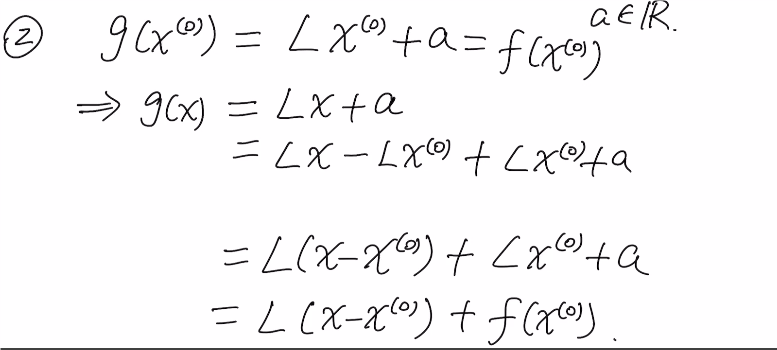 ② g(x⁽⁰⁾) = Lx⁽⁰⁾ + a = f(x⁽⁰⁾) a ∈ ℝ.
⇒ g(x) = Lx + a
= Lx − Lx⁽⁰⁾ + Lx⁽⁰⁾ + a
= L(x − x⁽⁰⁾) + Lx⁽⁰⁾ + a
= L(x − x⁽⁰⁾) + f(x⁽⁰⁾).